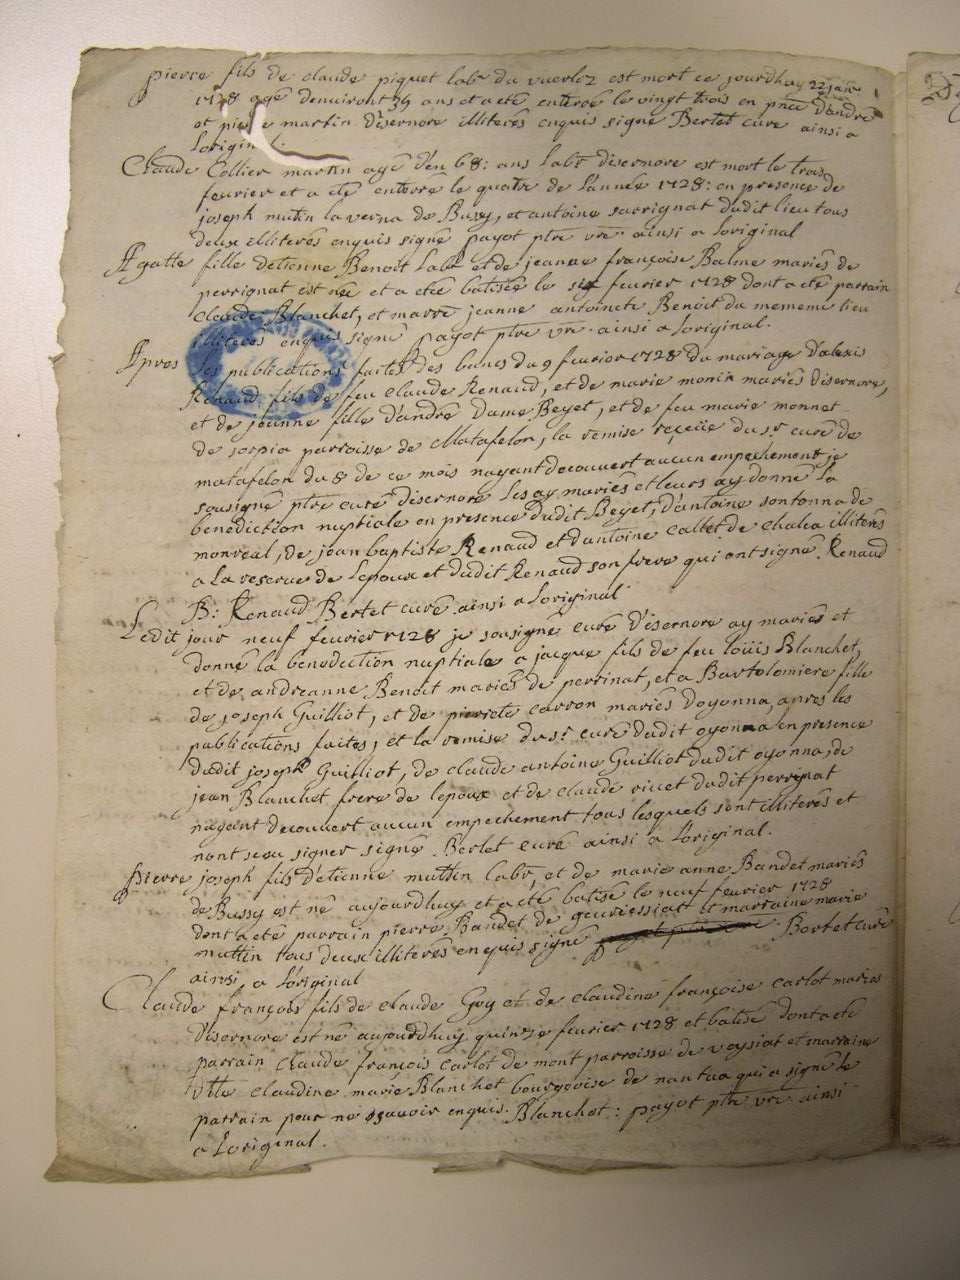 pierre fils de claude piquet labr du vuerloz est mort ce jourdhuy 22 janr
1728 agé denuiront 39 ans et a eté enterré le vingt trois en pnce d'andré
et pierre martin disernore illiterés enquis signé Bertet curé ainsi a
Loriginal.
Claude Collier martin agé d'en 68: ans Labr disernore est mort le trois
feurier et a eté enterré le quatre de L'année 1728: en presence de
joseph mutin la verna de Bussy, et antoine sarrignat dudit lieu tous
deux illiterés enquis signé payot ptre vre ainsi a Loriginal
Agatte fille detienne Benoit Labr et de jeanne françoise Balme mariés de
perrignat est née et a eteé batisée le six feurier 1728 dont a eté parrain
claude Blanchet, et marre jeanne antoinete Benoit du mememe lieu
illiterés enquis signé payot ptre vre ainsi a Loriginal.
Apres Les publications faites des bancs du 9 feurier 1728 du mariage d'alexis
Renaud fils de feu claude Renaud, et de marie monin mariés disernore,
et de jeanne fille d'andré Dame Beyet, et de feu marie monnet
de sorpia parroisse de Matafelon, la remise reçeüe du sr curé de
matafelon du 8 de ce mois nayant decouvert aucun empechement je
sousigné ptre curé disernore Les ay mariés et leurs ay donné La
benediction nuptiale en presence dudit Beyet, d'antoine sontonna de
monreal, de jean baptiste Renaud et d'antoine callet de Chalea illiterés
a La reserue de Lepoux et dudit Renaud son frere qui ont signé. Renaud
B: Renaud Bertet curé ainsi a Loriginal.
Ledit jour neuf feurier 1728 je sousigné curé d'isernore ay mariés et
donné la benediction nuptiale a jacque fils de feu loüis Blanchet,
et de andreanne Benoit mariés de perrinat, et a Bartolomiere fille
de joseph Guilliot, et de pierrete carron mariés doyonna, apres les
publications faites, et la remise du sr. curé dudit oyonna en presence
dudit joseph Guilliot, de claude antoine Guilliot dudit oyonna, de
jean Blanchet frere de lepoux et de claude riuet dudit perrignat
nayant decouvert aucun empechement tous lesquels sont illiterés et
nont sceu signer signé Bertet curé ainsi a L'original.
Pierre joseph fils d'etienne muttin labr, et de marie anne Bandet mariés
de Bussy est né aujourdhuy et a eté batisé le neuf feurier 1728
dont a eté parrain pierre Bandet de geuriessiat et marraine marie
muttin tous deux illiterés enquis signé Bertet curé
ainsi a L'original
Claude françois fils de claude Goy et de claudine françoise carlot mariés
disernore est né aujourdhuy quinze feurier 1728 et batisé dont a eté
parrain claude françois carlot de mont parroisse de veysiat et marraine
dlle claudine marie Blanchet bourgeoise de nantua qui a signé le
parrain pour ne sçauoir enquis. Blanchet: payot ptre vre ainsi
a Loriginal.